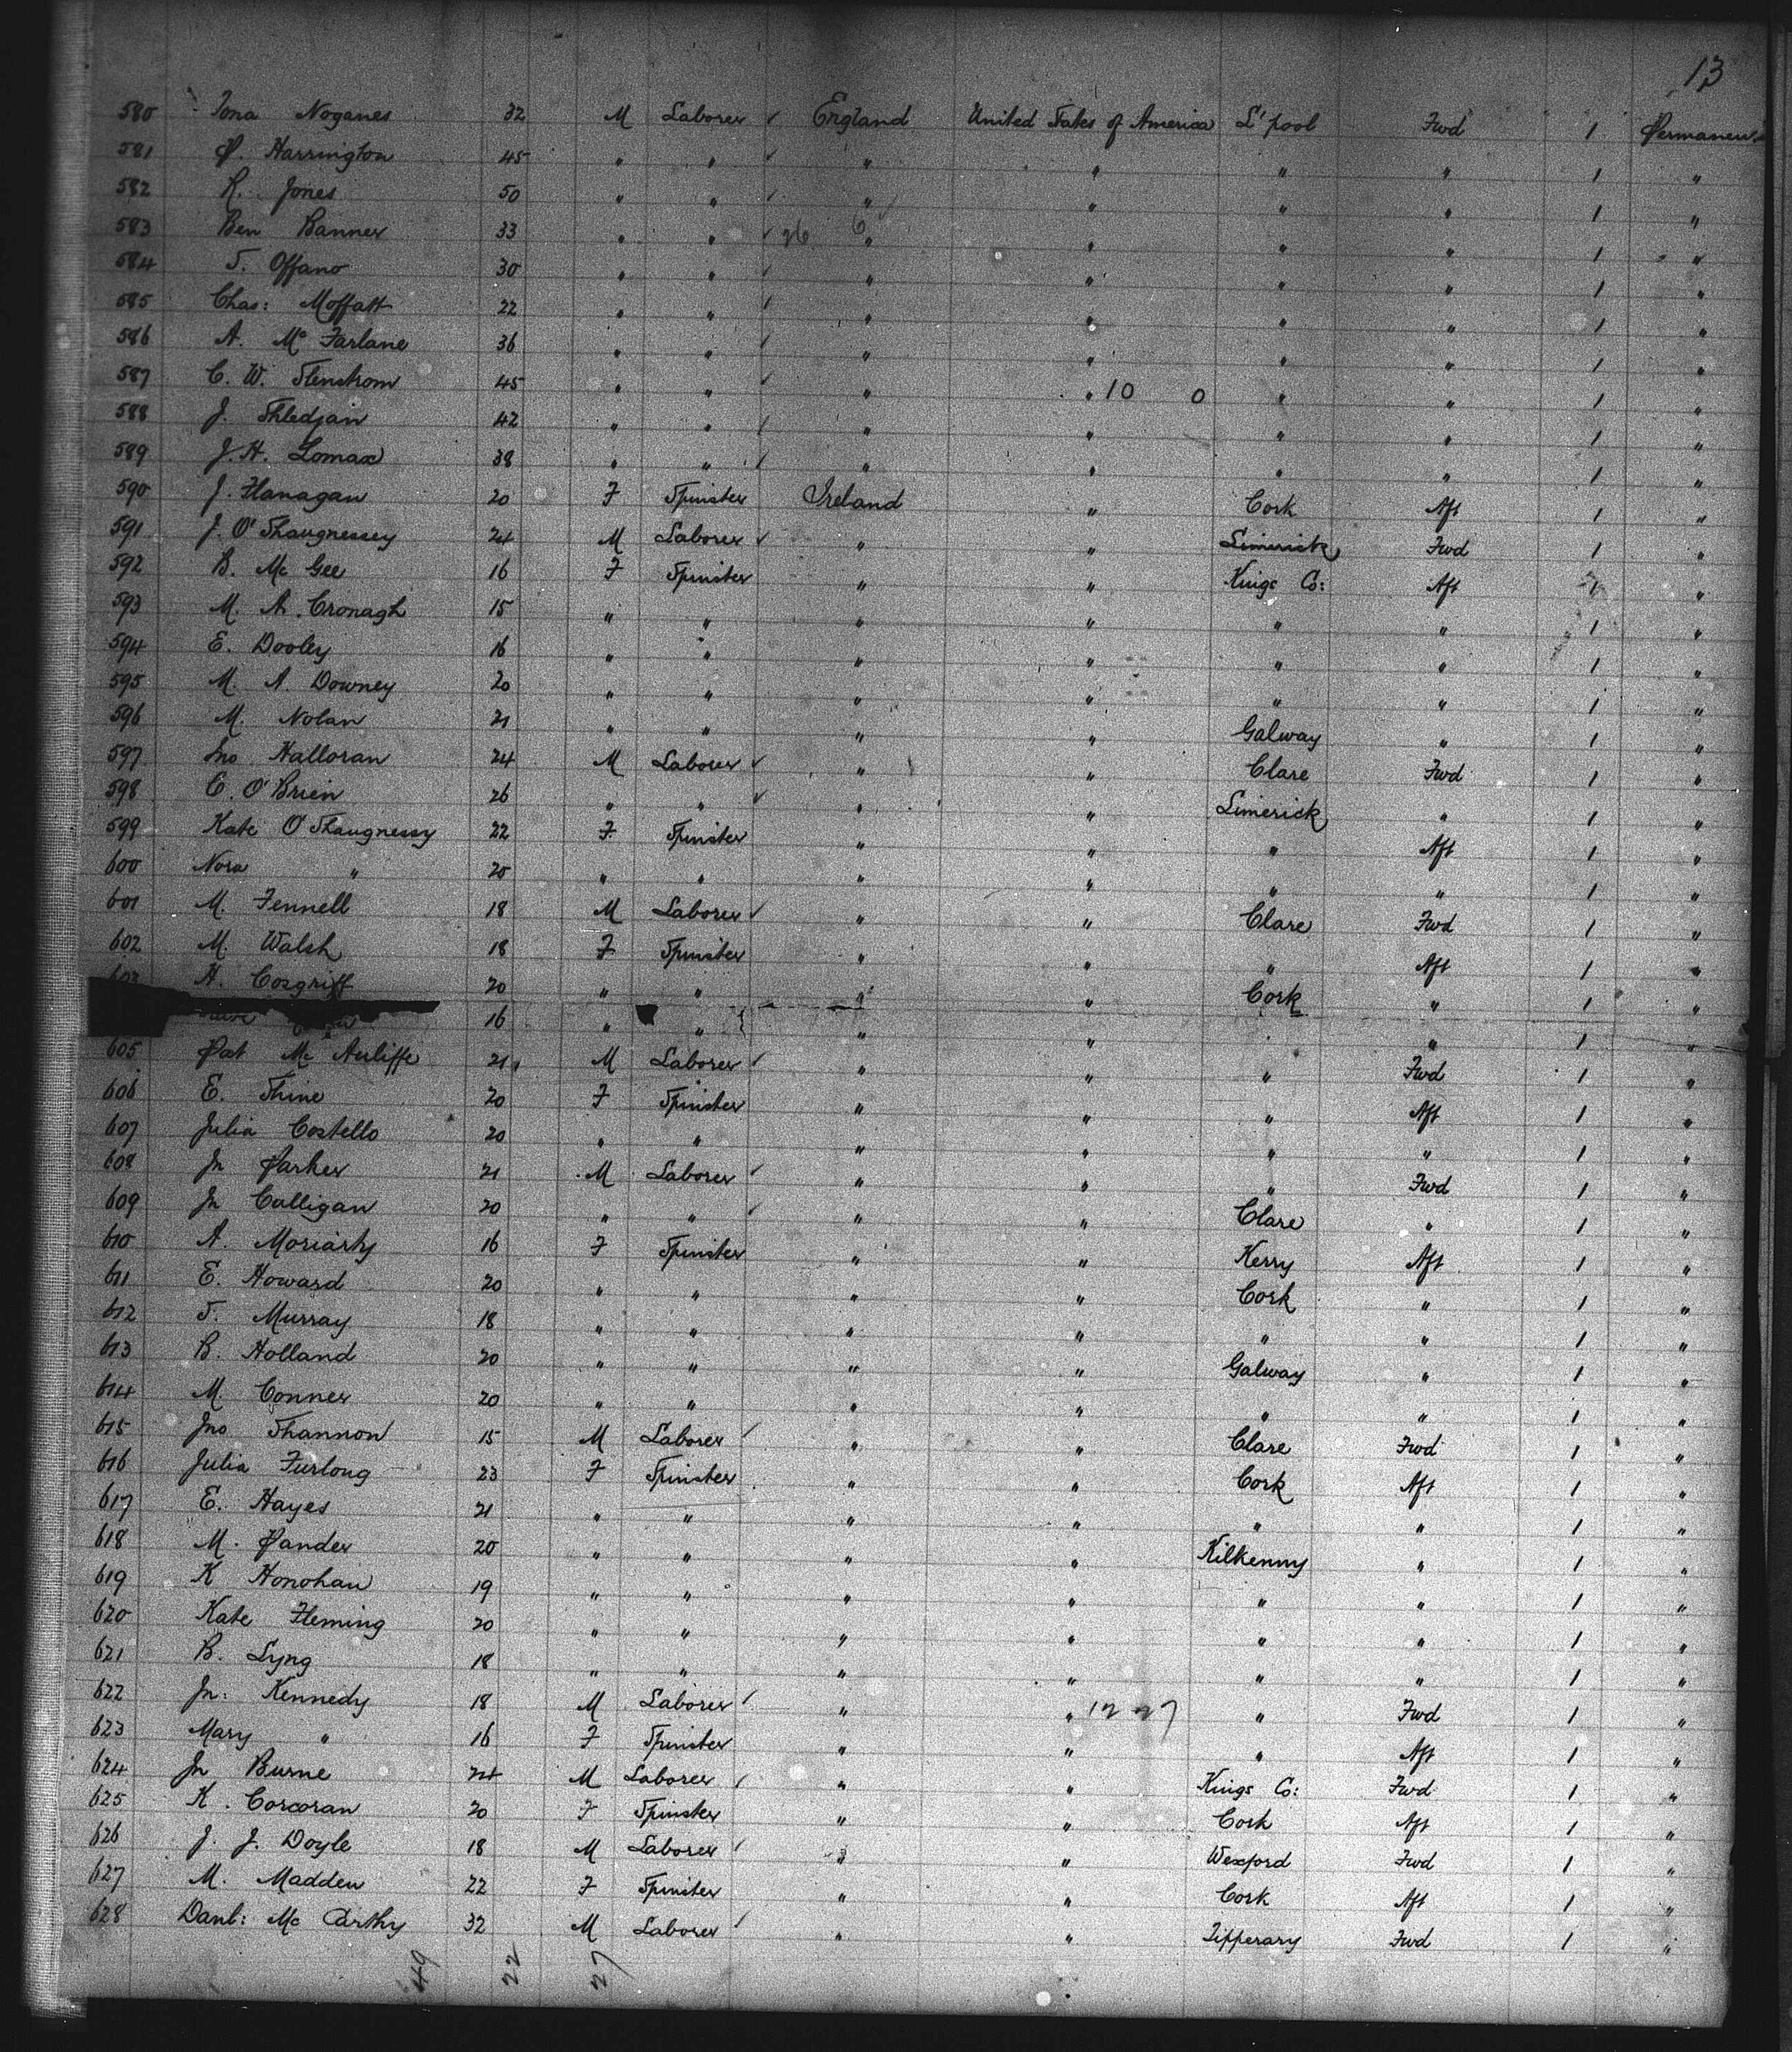 13
580 Iona Noganes 32 M Laborer ✓ England United States of America L'pool Fwd 1 Permanent
581 P. Harrington 45 " " ✓ " " " " 1 "
582 R. Jones 50 " " ✓ " " " " 1 "
583 Ben Banner 33 " " ✓ 26 6 " " " " 1 "
584 T. Offano 30 " " ✓ " " " " 1 "
585 Chas: Moffatt 22 " " ✓ " " " " 1 "
586 A. Mc Farlane 36 " " ✓ " " " " 1 "
587 C. W. Stenstrom 45 " " ✓ " " 10 0 " " 1 "
588 J. 42 " " ✓ " " " " 1 "
589 J. H. Lomax 38 " " ✓ " " " " 1 "
590 J. Flanagan 20 F Spinster Ireland " Cork Aft 1 "
591 J. O'Shaugnessey 24 M Laborer ✓ " " Limerick Fwd 1 "
592 B. Mc Gee 16 F Spinster " " Kings Co: Aft 1 "
593 M. A. Cronagh 15 " " " " " " 1 "
594 E. Dooley 16 " " " " " " 1 "
595 M. A. Downey 20 " " " " " " 1 "
596 M. Nolan 21 " " " " Galway " 1 "
597 Jno Halloran 24 M Laborer ✓ " " Clare Fwd 1 "
598 C. O'Brien 26 " " ✓ " " Limerick " 1 "
599 Kate O'Shaugnessy 22 F Spinster " " " Aft 1 "
600 Nora " 20 " " " " " " 1 "
601 M. Fennell 18 M Laborer ✓ " " Clare Fwd 1 "
602 M. Walsh 18 F Spinster " " " Aft 1 "
603 H. Cosgriff 20 " " " " Cork " 1 "
16 " " " " " 1 "
605 Pat Mc Auliffe 21 M Laborer ✓ " " " Fwd 1 "
606 E. Shine 20 F Spinster " " " Aft 1 "
607 Julia Costello 20 " " " " " " 1 "
608 Jn Parker 21 M Laborer ✓ " " " Fwd 1 "
609 Jn Culligan 20 " " ✓ " " Clare " 1 "
610 A. Moriarty 16 F Spinster " " Kerry Aft 1 "
611 E. Howard 20 " " " " Cork " 1 "
612 T. Murray 18 " " " " " " 1 "
613 B. Holland 20 " " " " Galway " 1 "
614 M. Conner 20 " " " " " " 1 "
615 Jno Shannon 15 M Laborer ✓ " " Clare Fwd 1 "
616 Julia Furlong 23 F Spinster " " Cork Aft 1 "
617 E. Hayes 21 " " " " " " 1 "
618 M. Pander 20 " " " " Kilkenny " 1 "
619 K Honohan 19 " " " " " " 1 "
620 Kate Fleming 20 " " " " " " 1 "
621 B. Lyng 18 " " " " " " 1 "
622 Jn: Kennedy 18 M Laborer ✓ " " 12 27 " Fwd 1 "
623 Mary " 16 F Spinster " " " Aft 1 "
624 Jn Burne 24 M Laborer ✓ " " Kings Co: Fwd 1 "
625 K. Corcoran 20 F Spinster " " Cork Aft 1 "
626 J. J. Doyle 18 M Laborer ✓ " " Wexford Fwd 1 "
627 M. Madden 22 F Spinster " " Cork Aft 1 "
628 Danl: Mc Carthy 32 M Laborer ✓ " " Tipperary Fwd 1 "
49 22 27